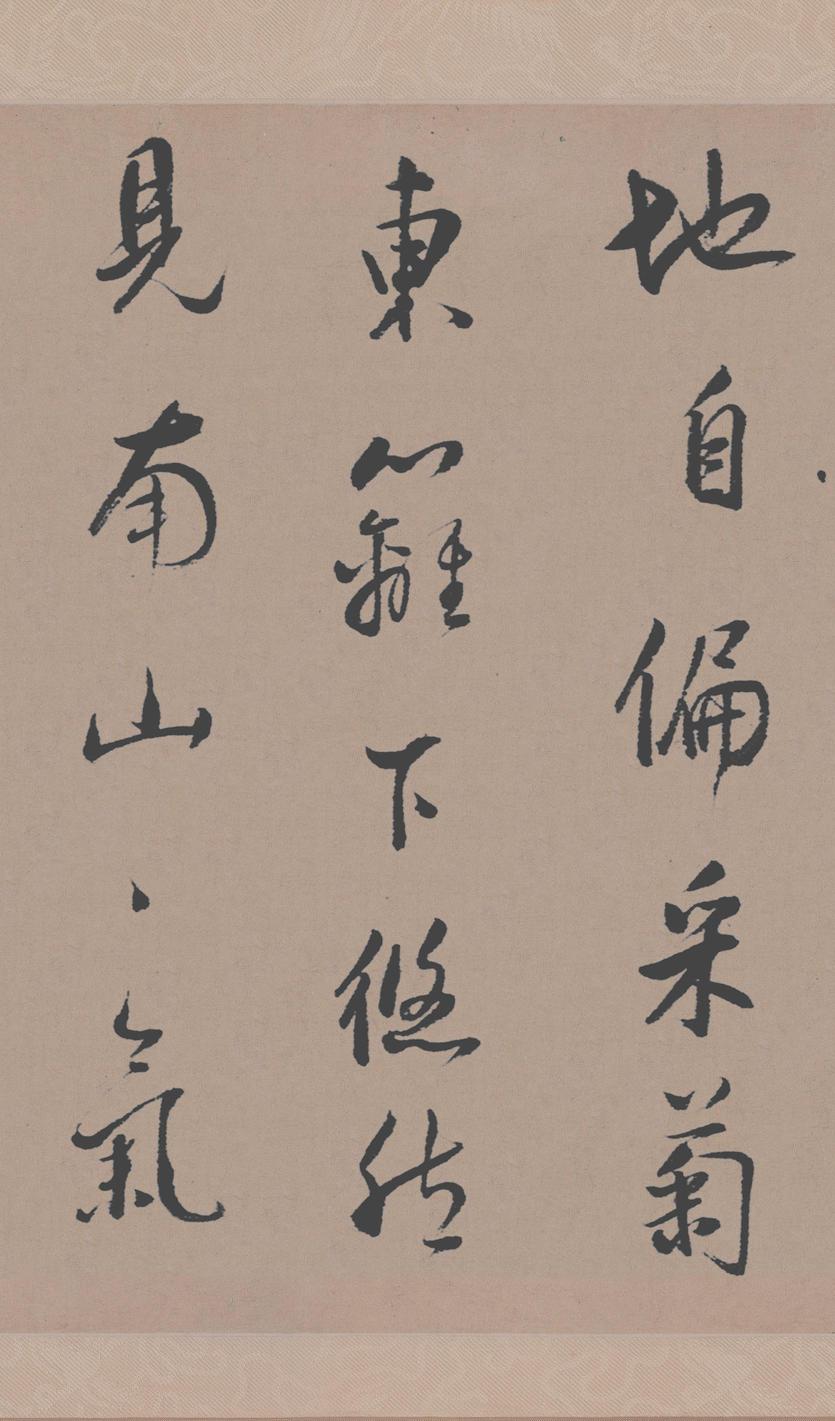 地自偏采菊
東籬下悠然
見南山山氣